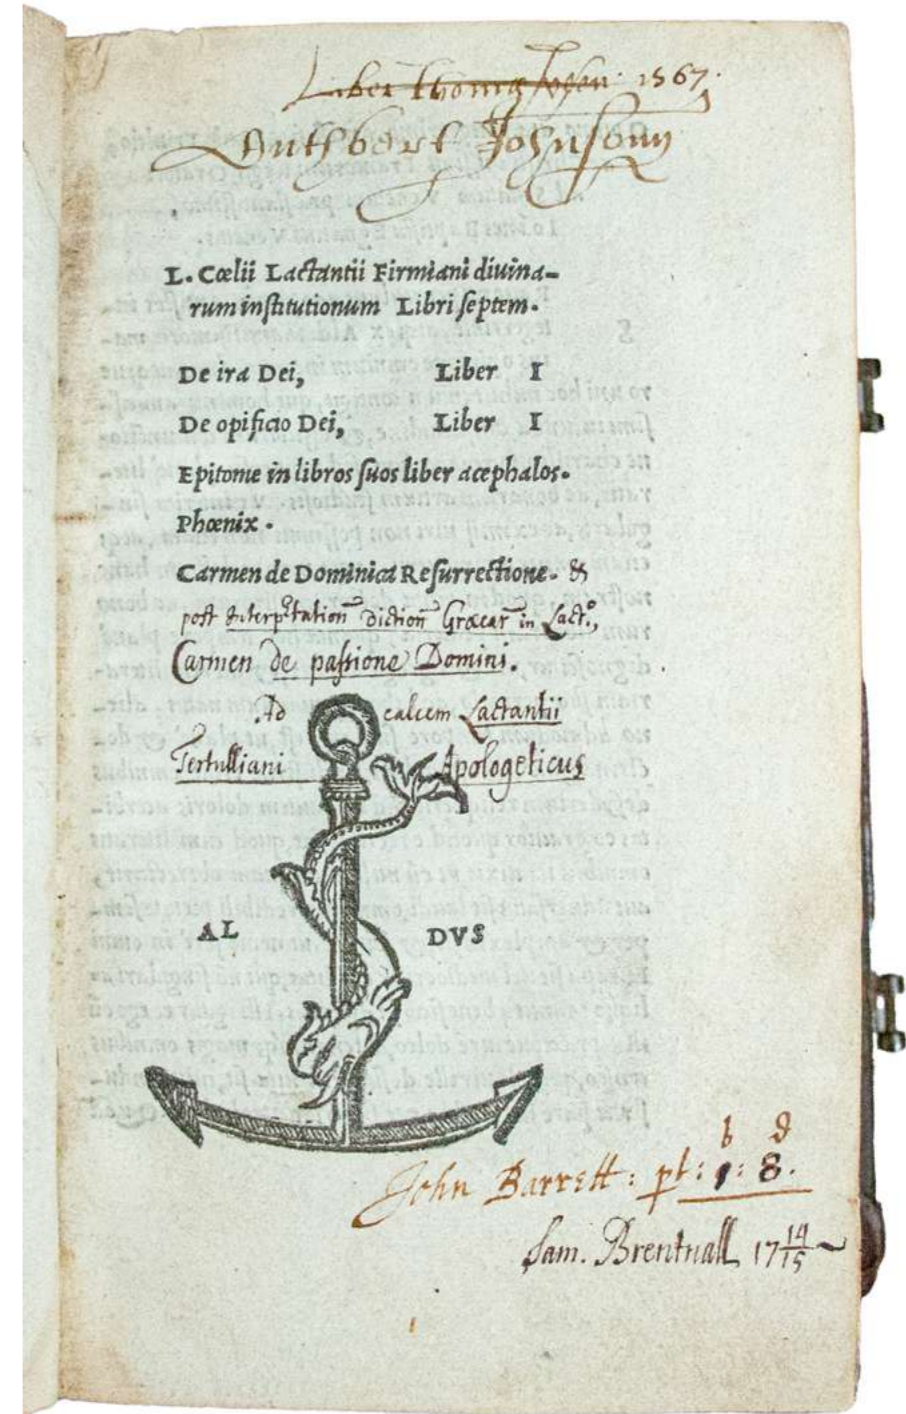 Liber Thomę 1567.
Cuthbert Johnson
L. Cœlii Lactantii Firmiani diuina-
rum institutionum Libri septem.
De ira Dei, Liber I
De opificio Dei, Liber I
Epitome in libros suos liber acephalos.
Phœnix.
Carmen de Dominica Resurrectione. &
post Interp̄tation̄ Diction̄ Græcar̄ in Lact°,
Carmen de passione Domini.
Ad calcem Lactantii
Tertulliani Apologeticus
AL DVS
b d
John Barrett: pt: 1: 8.
Sam. Brentnall 17 14/15